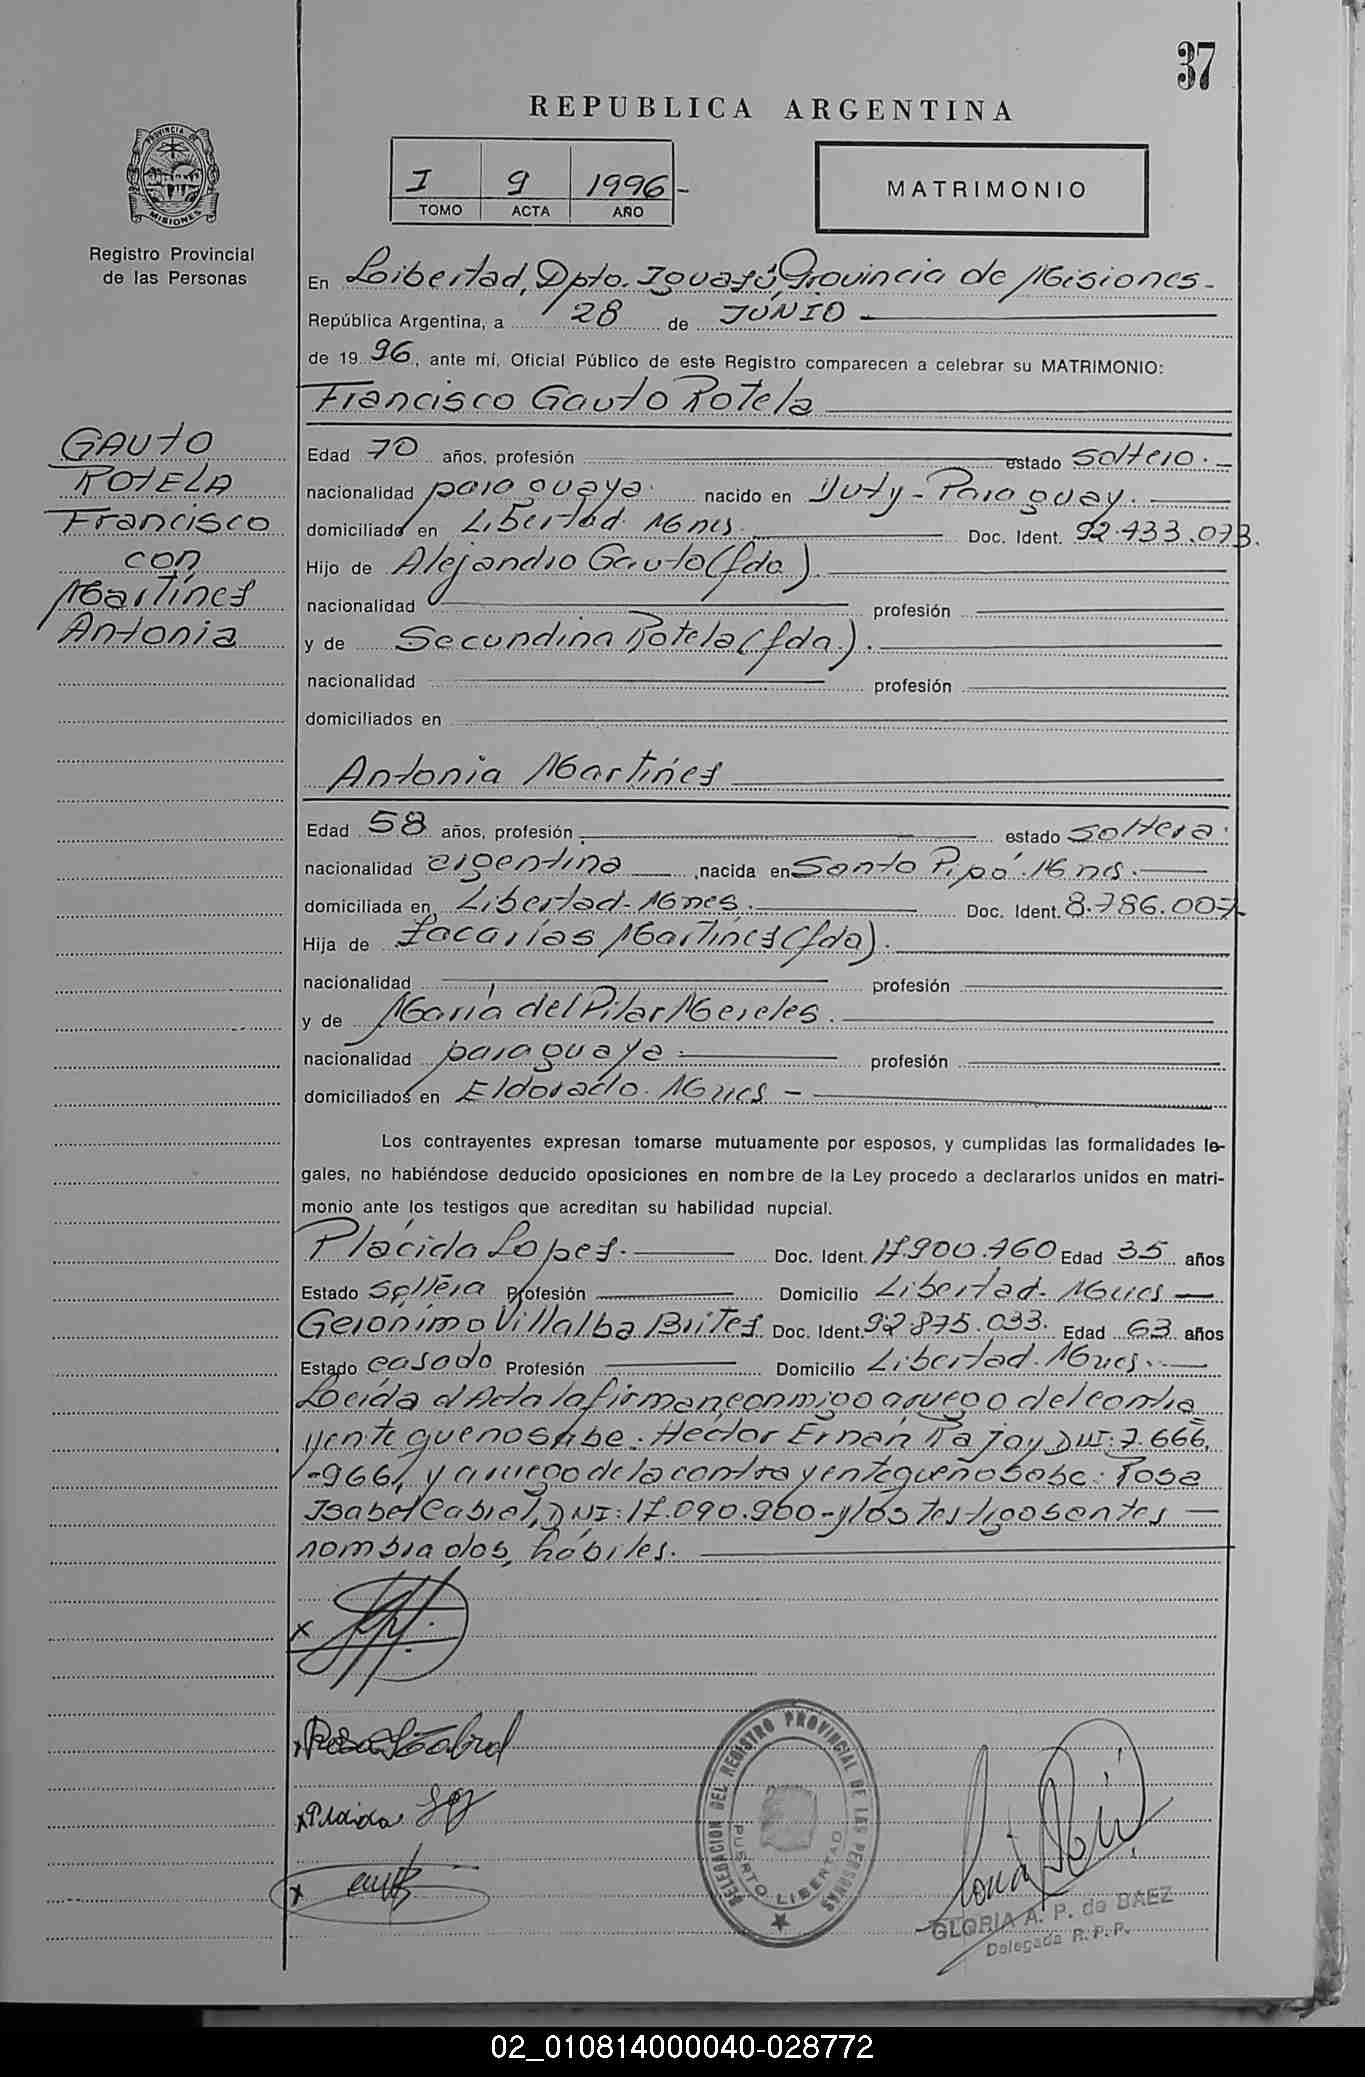 37
REPUBLICA ARGENTINA
I 9 1996-
TOMO ACTA AÑO
MATRIMONIO
PROVINCIA DE MISIONES
Registro Provincial
de las Personas
En Libertad, Dpto. Iguazú, Provincia de Misiones-
República Argentina, a 28 de JUNIO
de 19 96, ante mí, Oficial Público de este Registro comparecen a celebrar su MATRIMONIO:
Francisco Gauto Rotela
GAUTO
ROTELA
Francisco
con
Martínes
Antonia
Edad 70 años, profesión estado soltero.-
nacionalidad paraguaya. nacido en Yuty-Paraguay.
domiciliado en Libertad. Mnes. Doc. Ident. 92.433.073.
Hijo de Alejandro Gauto (fdo.).
nacionalidad profesión
y de Secundina Rotela (fda.).
nacionalidad profesión
domiciliados en
Antonia Martínes
Edad 58 años, profesión estado soltera.
nacionalidad argentina nacida en Santo Pipó. Mnes.
domiciliada en Libertad-Mnes. Doc. Ident. 8.786.007-
Hija de Zacarías Martínes (fdo).
nacionalidad profesión
y de María del Pilar Mereles.
nacionalidad paraguaya. profesión
domiciliados en Eldorado. Mnes-
Los contrayentes expresan tomarse mutuamente por esposos, y cumplidas las formalidades le-
gales, no habiéndose deducido oposiciones en nombre de la Ley procedo a declararlos unidos en matri-
monio ante los testigos que acreditan su habilidad nupcial.
Plácida Lopes. Doc. Ident. 17.900.760 Edad 35 años
Estado soltera Profesión Domicilio Libertad-Mnes
Gerónimo Villalba Brites Doc. Ident. 92.875.033. Edad 63 años
Estado casado Profesión Domicilio Libertad. Mnes.
Leída el Acta la firman conmigo a ruego del contra=
yente que no sabe: Hector Ernán DNI: 7.666.
-966, y a ruego de la contrayente que no sabe: Rosa
Isabel Cabral, DNI: 17.090.900-y los testigos antes
nombrados, hábiles.
Rosa I Cabral
Placida
DELEGACION DEL REGISTRO PROVINCIAL DE LAS PERSONAS
PUERTO LIBERTAD
GLORIA A. P. de BAEZ
Delegada R.P.P.
02_010814000040-028772